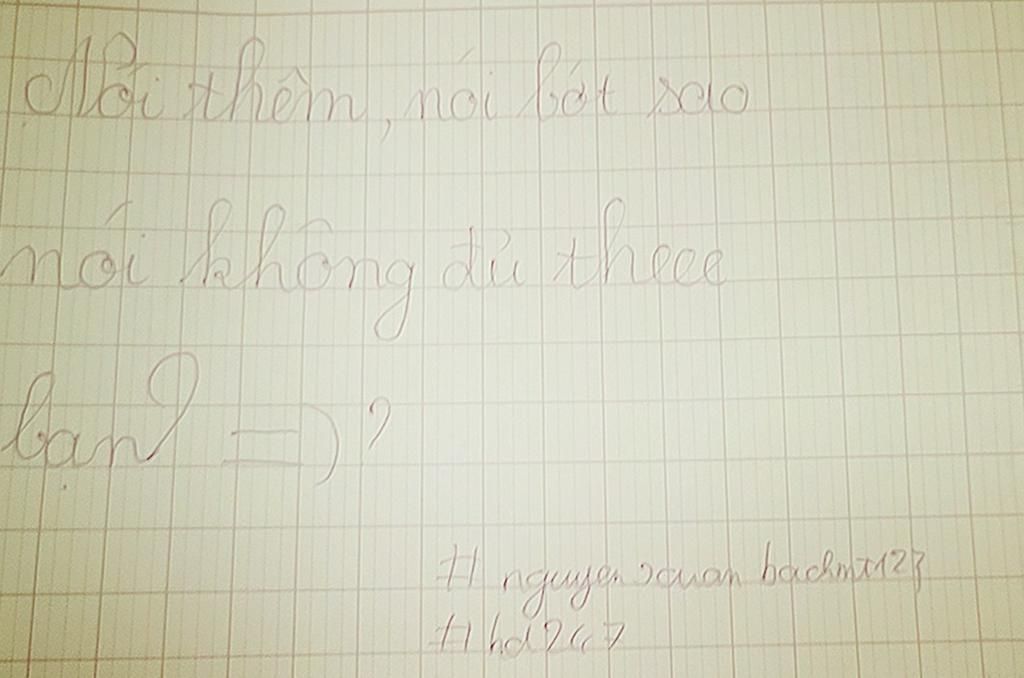 Nói thêm, nói bớt sao
nói không đủ theee
bạn? =) ?
# nguyenxuanbachnx123
# hd247